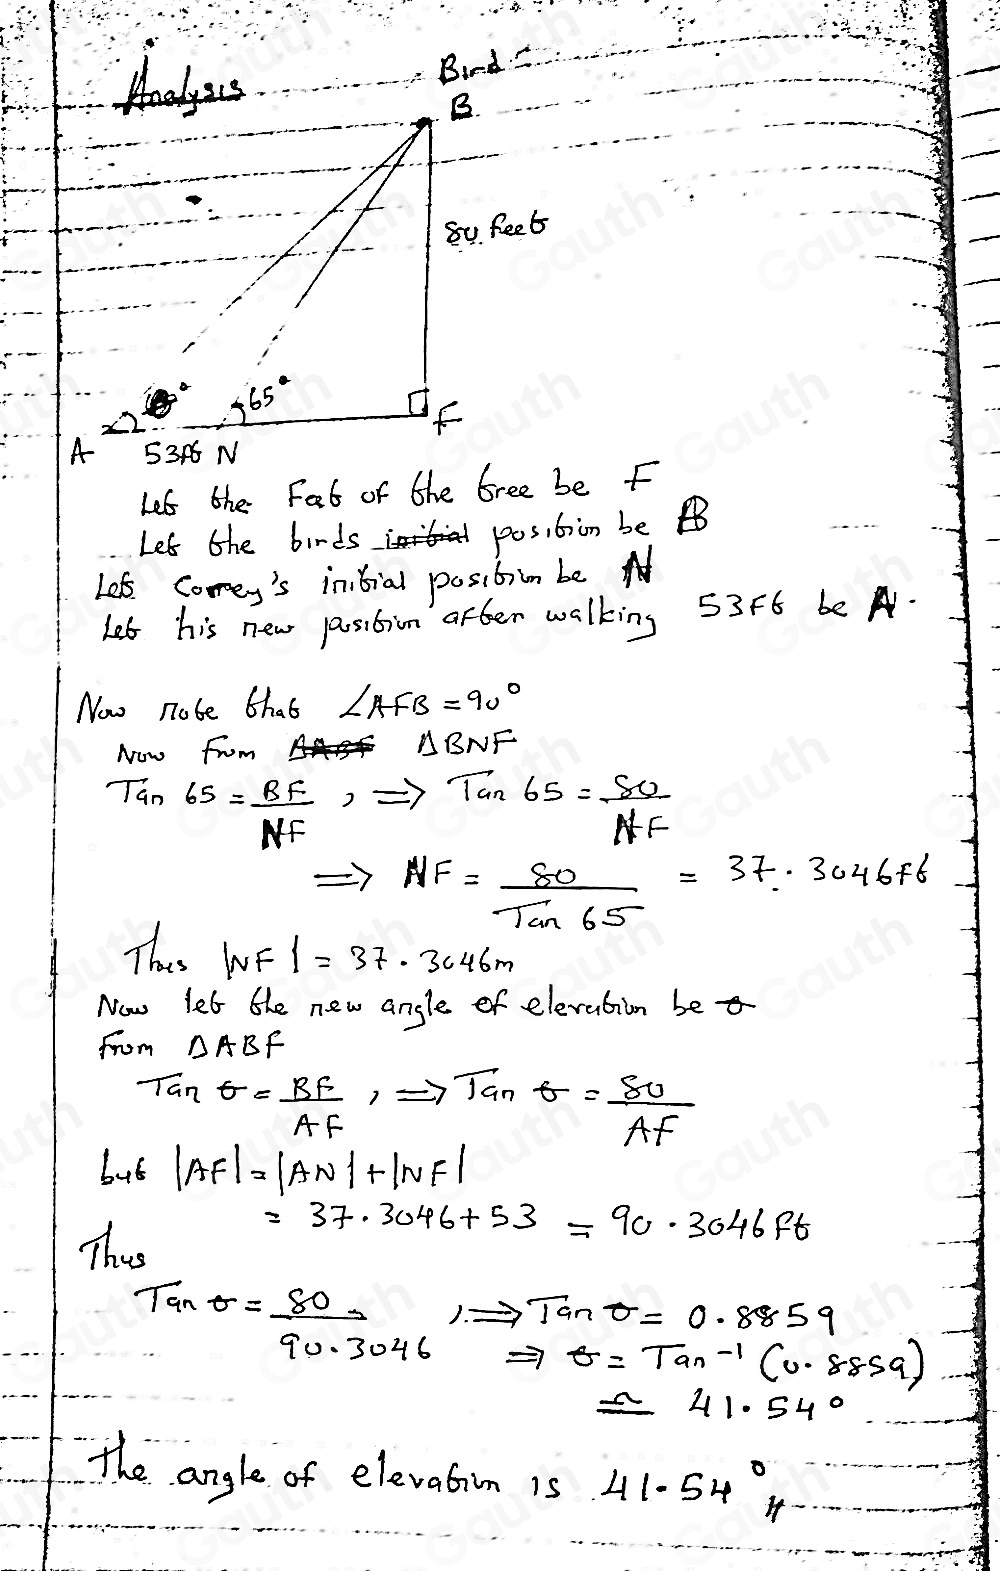 Analysis
Bird
B
80 feet
θ°
65°
A 53ft N F
Let the Foot of the tree be F
Let the birds initial position be B
Let Correy's initial position be N
Let his new position after walking 53ft be A.
Now note that ∠AFB = 90°
Now From ΔABF ΔBNF
Tan 65 = BF/NF , ⇒ Tan 65 = 80/NF
⇒ NF = 80/Tan 65 = 37.3046ft
Thus |NF| = 37.3046m
Now let the new angle of elevation be θ
From ΔABF
Tan θ = BF/AF , ⇒ Tan θ = 80/AF
but |AF| = |AN| + |NF|
= 37.3046 + 53 = 90.3046ft
Thus
Tan θ = 80/90.3046 , ⇒ Tan θ = 0.8859
⇒ θ = Tan⁻¹ (0.8859)
≏ 41.54°
The angle of elevation is 41.54°
Gauth